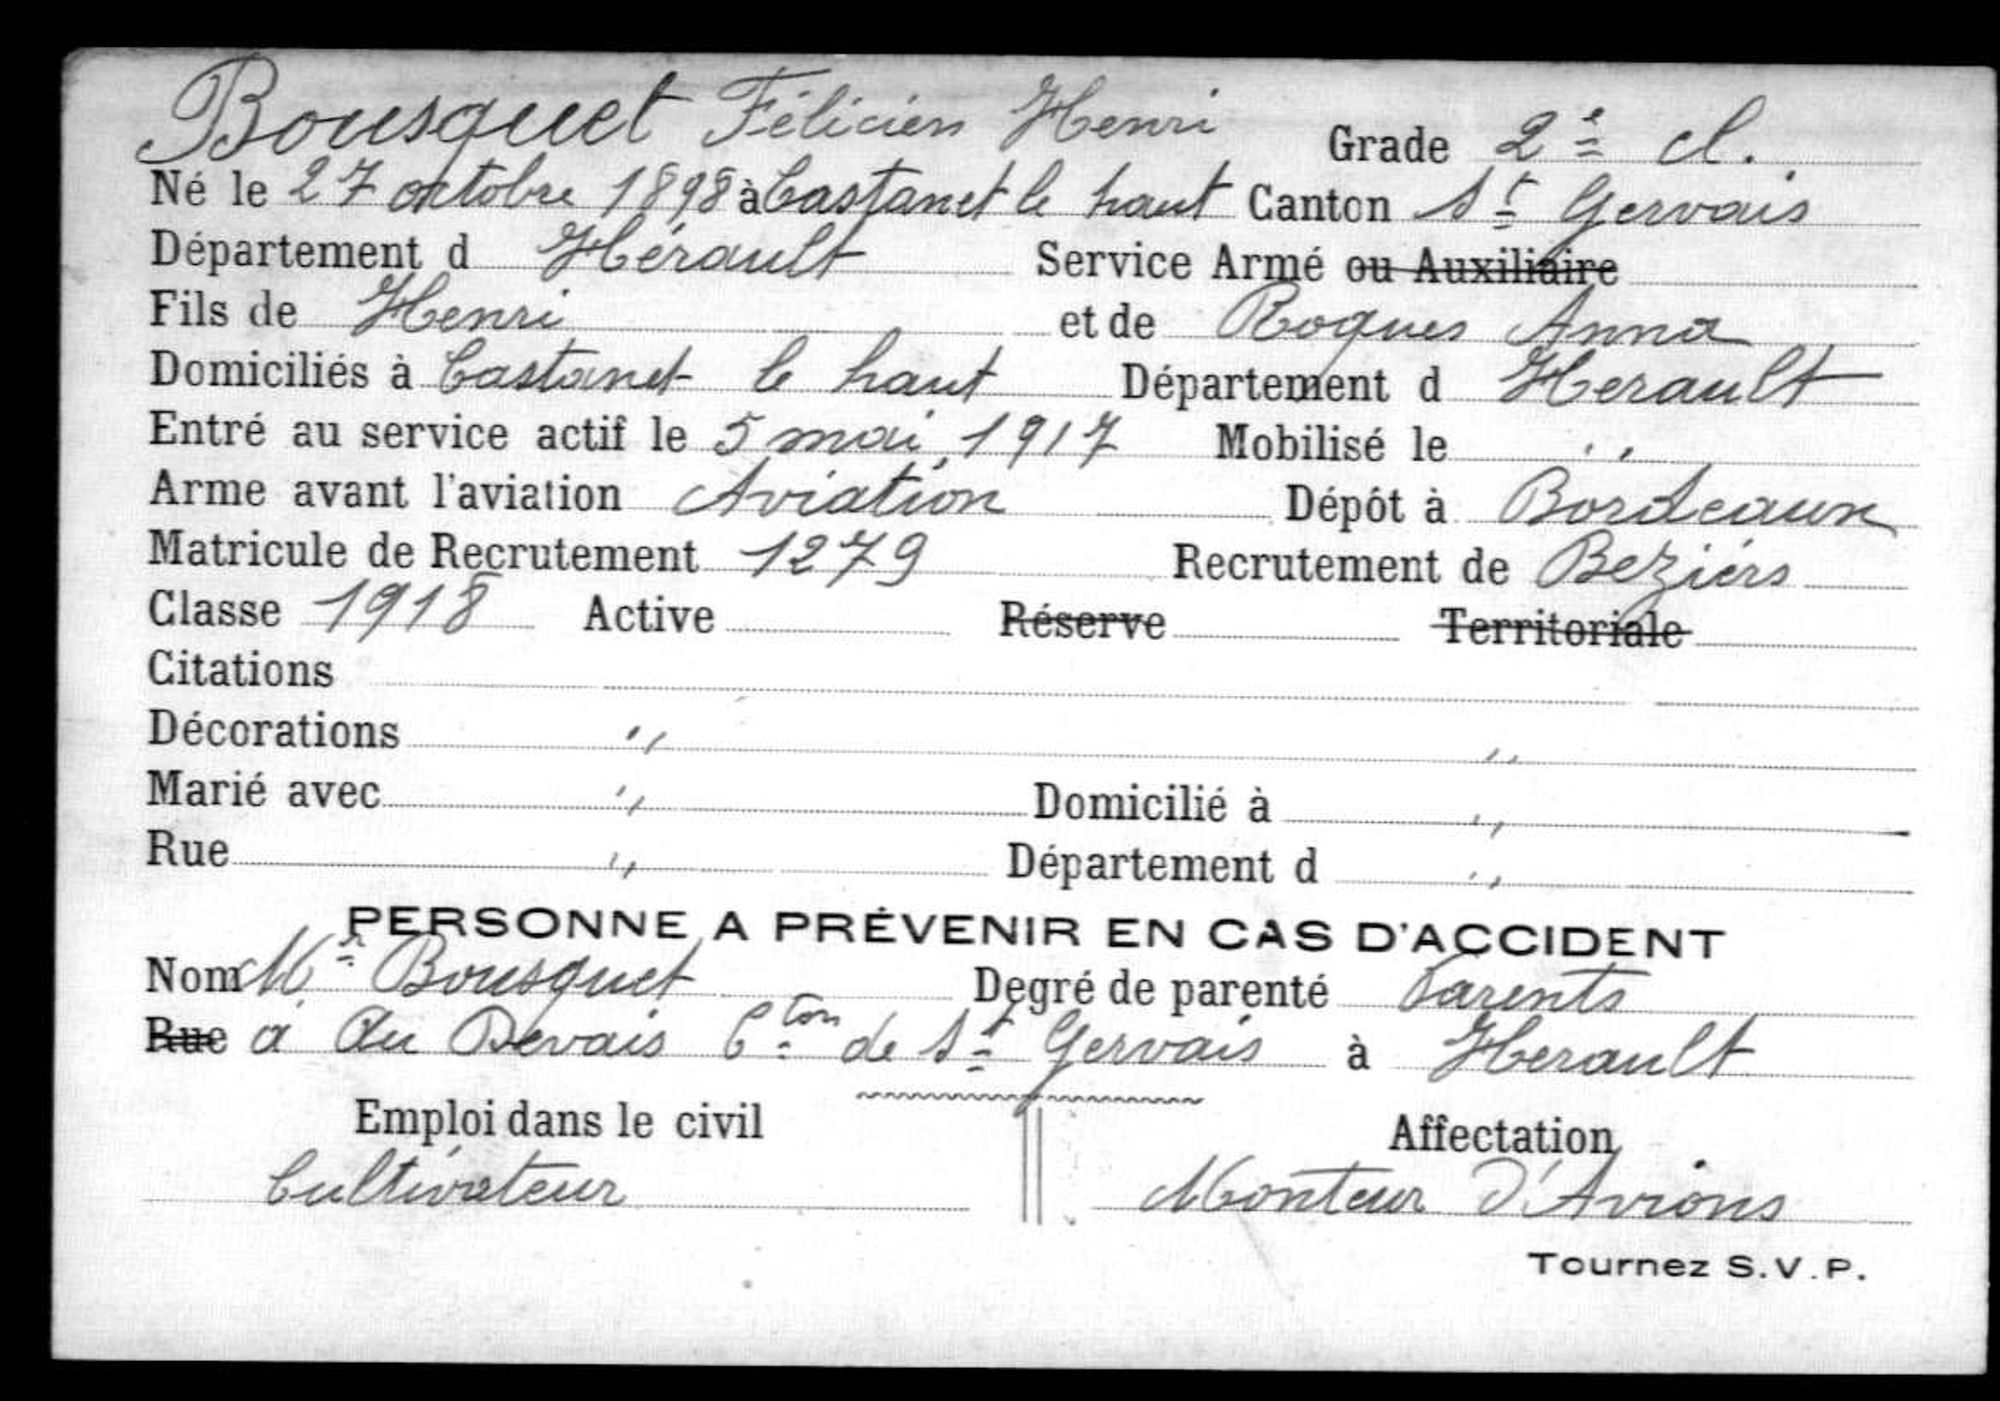 Bousquet Félicien Henri Grade 2e cl.
Né le 27 octobre 1898 à Castanet le haut Canton St Gervais
Département d Hérault Service Armé ou Auxiliaire
Fils de Henri et de Roques Anna
Domiciliés à Castanet le haut Département d Herault
Entré au service actif le 5 mai 1917 Mobilisé le ,,
Arme avant l'aviation Aviation Dépôt à Bordeaux
Matricule de Recrutement 1279 Recrutement de Beziérs
Classe 1918 Active Réserve Territoriale
Citations
Décorations ,, ,,
Marié avec ,, Domicilié à ,,
Rue ,, Département d ,,
PERSONNE A PRÉVENIR EN CAS D'ACCIDENT
Nom Mr Bousquet Degré de parenté Parents
Rue a Au Devais Cton de St Gervais à Herault
Emploi dans le civil Affectation
Cultivateur Monteur d'Avions
Tournez S.V.P.